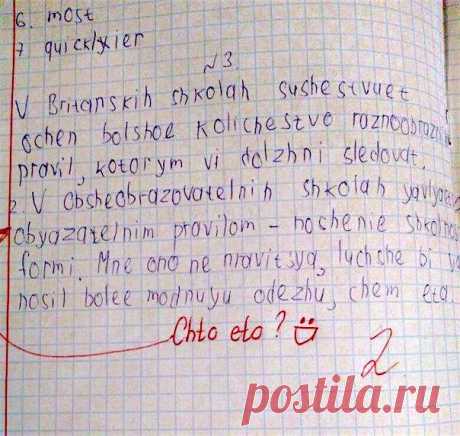 6. most
7 quicklyier
№3
V Britanskih shkolah sushestvuet
ochen bolshoe kolichestvo raznoobrazn
pravil, kotorym vi dolzhni sledovat.
2. V obsheobrazovatelnih shkolah yavlyaets
obyazatelnim pravilom - noshenie shkolnoi
formi. Mne ono ne nravitsya, luchshe bi ya
nosil bolee modnuyu odezhu, chem eta.
Chto eto?
2
postila.ru